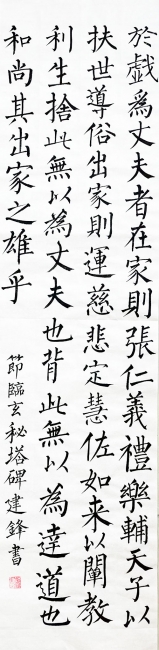 於戲爲丈夫者在家則張仁義禮樂輔天子以
扶世導俗出家則運慈悲定慧佐如来以闡教
利生捨此無以為丈夫也背此無以為達道也
和尚其出家之雄乎
節臨玄秘塔碑建鋒書